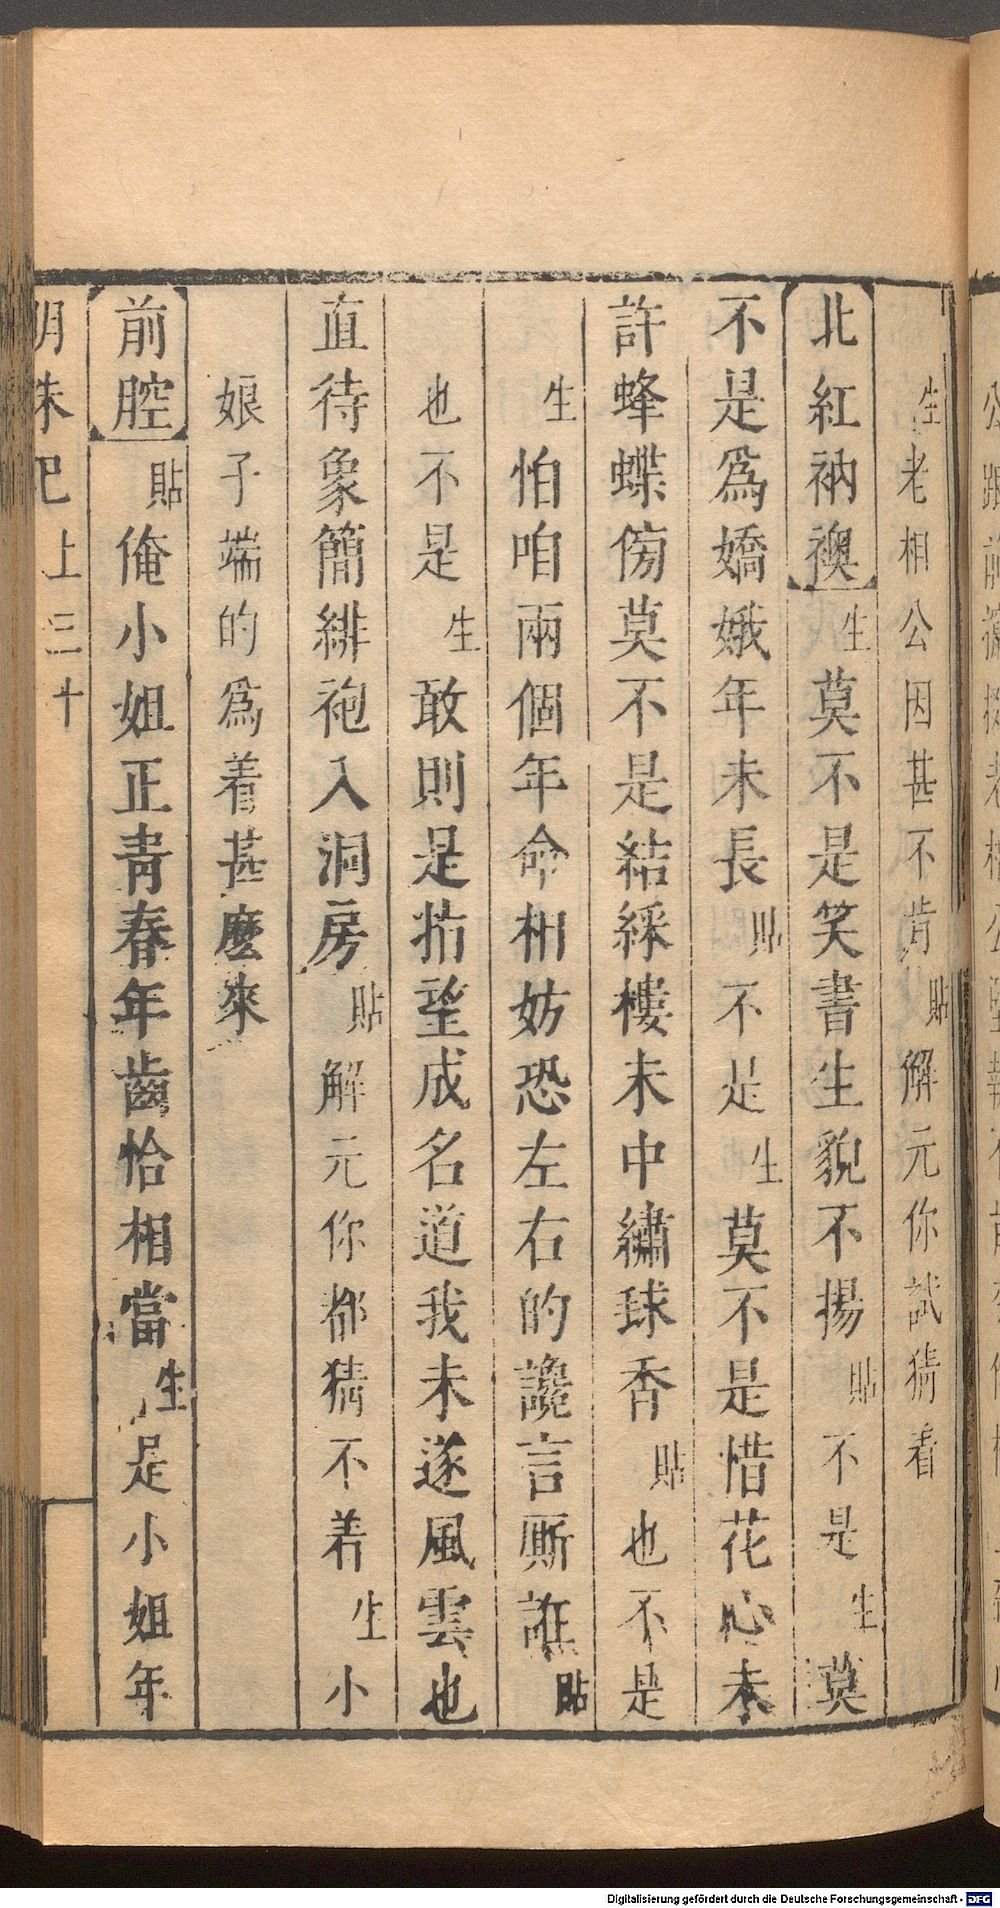 生老相公因甚不肯貼解元你試猜看
北紅衲襖生莫不是笑書生貌不揚貼不是生莫
不是爲嬌娥年未長貼不是生莫不是惜花心未
許蜂蝶傍莫不是結綵樓未中繡毬香貼也不是
生怕咱兩個年命相妨恐左右的讒言厮誑貼
也不是生敢則是指望成名道我未遂風雲也
直待象簡緋袍入洞房貼解元你都猜不着生小
娘子端的爲着甚麽來
前腔貼俺小姐正青春年齒恰相當生是小姐年
明珠記上三十
Digitalisierung gefördert durch die Deutsche Forschungsgemeinschaft - DFG